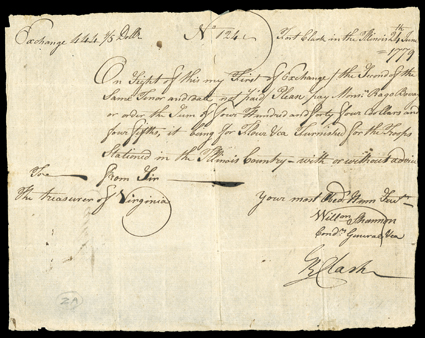 Exchange 444 4/5 Dolls No 124 Fort Clark in the Illinois 24th June
1779
On Sight of this my First of Exchange (the Second of the
Same Tenor and date not paid) Please pay Monsr Rago
or order the Sum of Four Hundred and forty four Dollars and
four fifths, it being for Flour &ca Furnished for the Troops
Stationed in the Illinois Country - with or without advice
From Sir
The treasurer of Virginia
Your most Obedt Hum Servt
Willm Shannon
Condr General
GR Clark
20